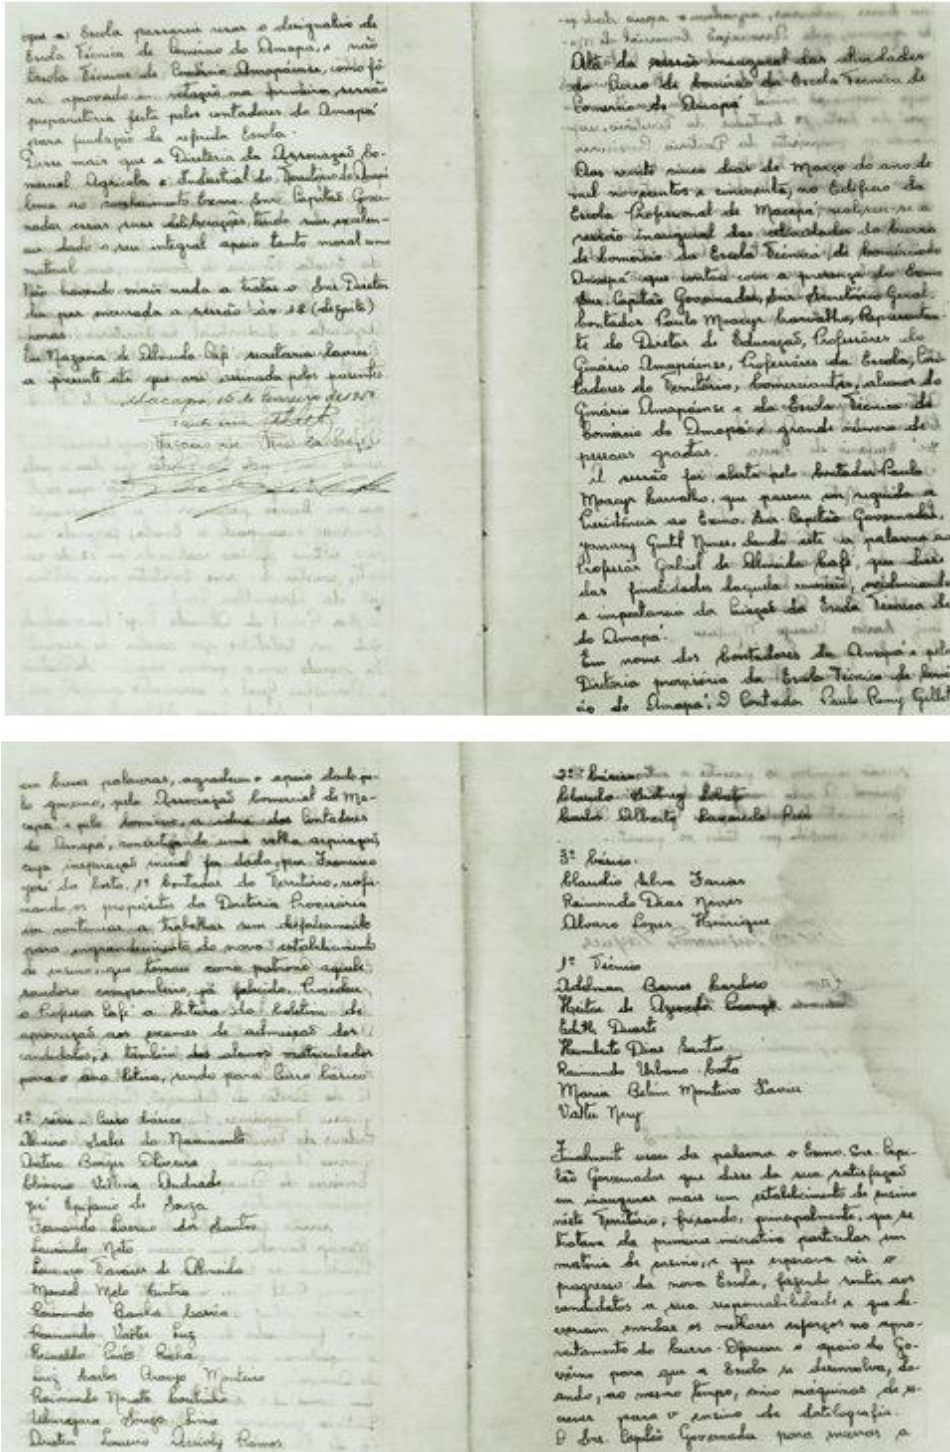 que a Escola passaria usar o designativo de
Escola Técnica de Comércio do Amapá, e não
Escola Técnica de Comércio Amapáense, como fô
ra aprovado em relação na primeira sessão
preparatória feita pelos contadores do Amapá
para fundação da referida Escola.
Disse mais que a Diretoria da Associação Co-
mercial Agricola e Industrial do Território do Amapá
levou ao conhecimento Exmo. Snr. Capitão Gover-
nador essas suas deliberações, tendo sua excelen-
cia dado o seu integral apoio tanto moral como
material.
Não havendo mais nada a tratar o Snr. Diretor
deu por encerrada a sessão às 18 (dezoito)
horas.
Eu Nazaria de Almeida Café secretaria lavrei
a presente ata que vai assinada pelos presentes
Macapá, 16 de fevereiro de 1950
Ata da sessão inaugural das atividades
do Curso de Comércio da Escola Técnica de
Comércio do Amapá
Aos vinte cinco dias de Março do ano de
mil novecentos e cincoenta, no Edifício da
Escola Profissional de Macapá, realizou-se a
sessão inaugural das atividades do Curso
de Comércio da Escola Técnica de Comércio do
Amapá que contou com a presença do Exmo
Snr. Capitão Governador, Snr. Secretário Geral,
Contador Paulo Moacyr Carvalho, Representan-
te do Diretor de Educação, Professôres do
Ginásio Amapáense, Professôres da Escola, Con-
tadores do Território, Comerciantes, alunos do
Ginásio Amapáense e da Escola Técnica de
Comércio do Amapá e grande número de
pessoas gradas.
A sessão foi aberta pelo Contador Paulo
Moacyr Carvalho, que passou em seguida a
Presidência ao Exmo. Snr. Capitão Governador,
Janary Gentil Nunes, dando este a palavra ao
Professor Gabriel de Almeida Café, que disse
das finalidades daquela reunião, evidenciando
a importancia da criação da Escola Técnica de
do Amapá.
Em nome dos Contadores do Amapá e pela
Diretoria provisória da Escola Técnica de Comér
cio do Amapá, o Contador Paulo Remy Gillet
em breves palavras, agradeceu o apoio dado pe-
lo governo, pela Associação Comercial de Ma-
capá e pelo comércio, a idéia dos Contadores
do Amapá, concretizando uma velha aspiração,
cuja inspiração inicial foi dada, por Francisco
José da Costa, 1º Contador do Território, reafir-
mando os propósitos da Diretoria Provisória
em continuar a trabalhar sem desfalecimento
para engrandecimento do novo estabelecimento
de ensino, que tomou como patrono aquele
saudoso companheiro, já falecido. Procedeu
o Professor Café a leitura do boletim de
aprovação aos exames de admissão dos
candidatos, e também dos alunos matriculados
para o ano letivo, sendo para Curso básico
1ª série - Curso básico
Sales do Nascimento
Antero Borges Oliveira
Villena Andrade
José Epifanio de Souza
Fernando Lacruz dos Santos
Laurindo Neto
Lourenço Tavares de Almeida
Manoel Melo
Raimundo Banha
Raimundo Valter Luz
Reinaldo
Luiz Carlos Araujo Monteiro
Raimundo Nonato Coutinho
Ubiragara Souza Lima
Loureiro Accioly Ramos
2º Básico
Claudio Lobato
Carlos Alberto Reis
3º Básico.
Claudio Silva Farias
Raimundo Dias Neves
Alvaro Lopes Henrique
1º Técnico
Adelman Barros Cardoso
Heitor de Azevedo
Edith Duarte
Humberto Dias Santos
Raimundo Urbano Costa
Maria Belim Monteiro
Valter Nery
Finalmente usou da palavra o Exmo. Snr. Capi-
tão Governador que disse da sua satisfação
em inaugurar mais um estabelecimento de ensino
nêste Território, frisando, principalmente, que se
tratava da primeira iniciativa particular em
materia de ensino, e que esperava vêr o
progresso da nova Escola, fazendo sentir aos
candidatos a sua responsabilidade e que de-
veriam envidar os melhores esforços no apro-
veitamento do Curso. Ofereceu o apoio do Go-
vêrno para que a Escola se desenvolva, do-
ando, ao mesmo tempo, cinco máquinas de es-
crever para o ensino de datilografia.
O Snr. Capitão Governador para a